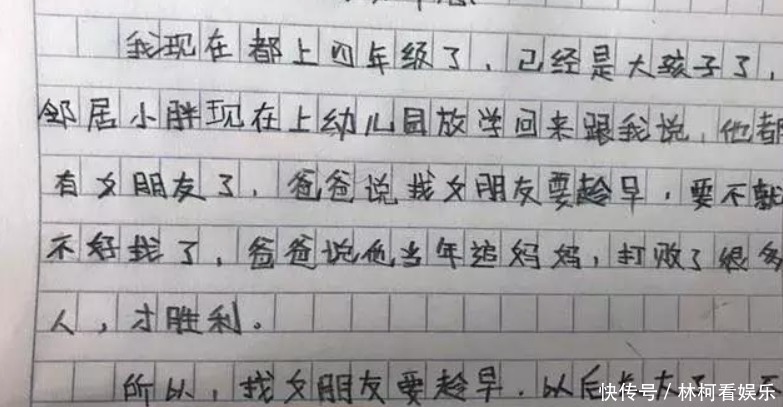 我现在都上四年级了，已经是大孩子了，
邻居小胖现在上幼儿园放学回来跟我说，他都
有女朋友了，爸爸说找女朋友要趁早，要不就
不好找了，爸爸说他当年追妈妈，打败了很多
人，才胜利。
所以，找女朋友要趁早．以后长大了
快传号／林柯看娱乐